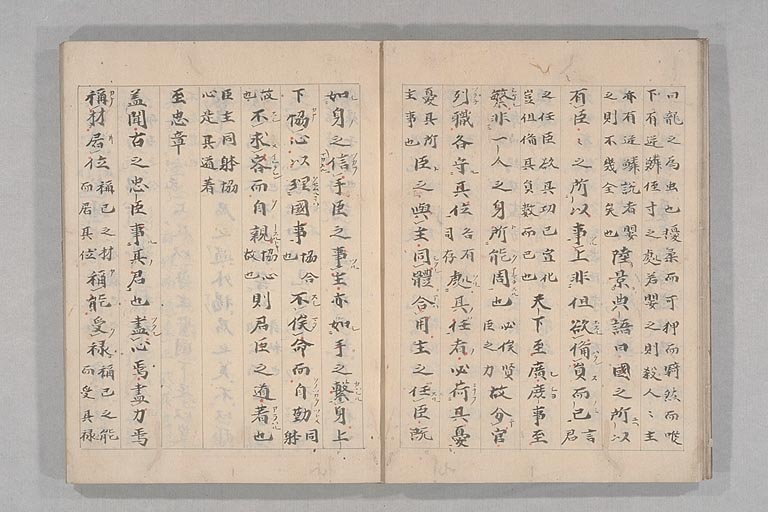 曰龍之為虫也擾柔而可狎而騎然而喉
下有逆鱗徑寸之處若嬰之則殺人〻主
亦有逆鱗説者嬰之則不幾矣也陸景典語曰國之所以
有臣〻之所以事上非但欲備員而已言君
之任臣欲其功己宣化豈但備其員數而已也天下至廣庶事至
繁非一人之身所能周也必俟賢臣之力故分官
列職各守其位各有司存處其任者必荷其憂
憂其所主事也臣之與主同體合用主之任臣既
如身之信手臣之事主亦如手之繫身上
下協心以理國事協合也不俟命而自勤同躰
故也不求容而自親協心故也則君臣之道著也
臣主同躰協心是其道著
至忠章
蓋聞古之忠臣事其君也盡心焉盡力焉
稱材居位稱己之材而居其位稱能受禄稱己之能而受其禄